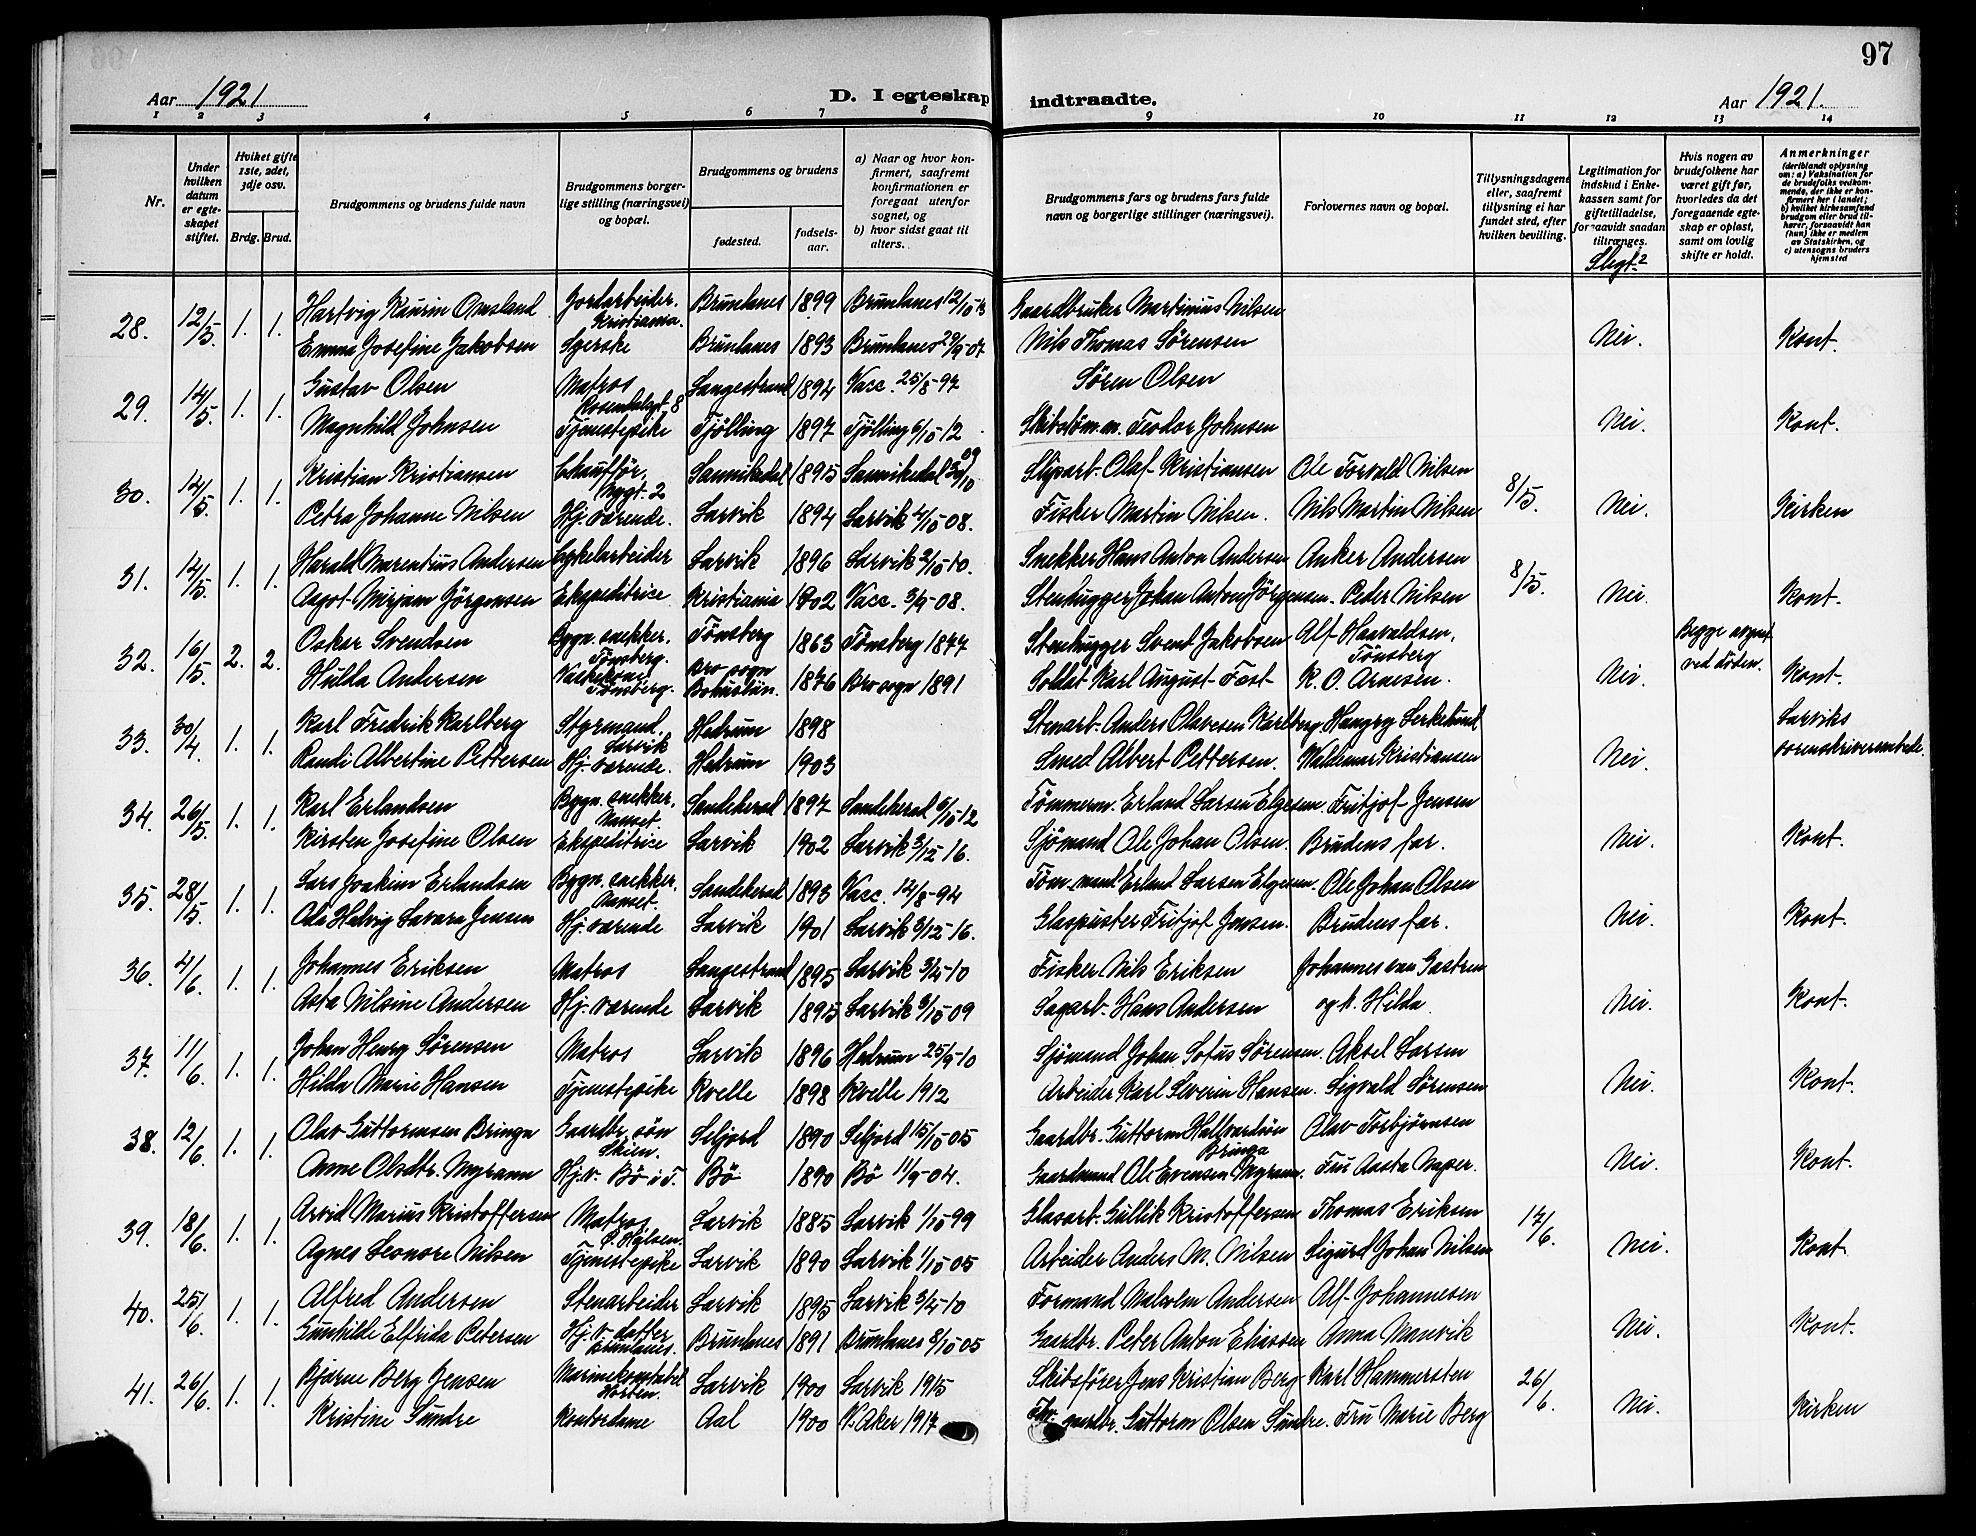 97
Aar 1921
D. I egteskap indtraadte.
Aar 1921.
1 2 3 4 5 6 7 8 9 10 11 12 13 14
Nr.
Under hvilken datum er egteskapet stiftet.
Hviket gifte 1ste, 2det, 3dje osv.
Brdg. Brud.
Brudgommens og brudens fulde navn
Brudgommens borgerlige stilling (næringsvei) og bopæl.
Brudgommens og brudens
fødested.
fødselsaar.
a) Naar og hvor konfirmert, saafremt konfirmationen er foregaat utenfor sognet, og
b) hvor sidst gaat til alters.
Brudgommens fars og brudens fars fulde navn og borgerlige stillinger (næringsvei).
Forlovernes navn og bopæl.
Tillysningsdagene eller, saafremt tillysning ei har fundet sted, efter hvilken bevilling.
Legitimation for indskud i Enkekassen samt for giftetilladelse, forsaavidt saadan tiltrænges.
Slegt?
Hvis nogen av brudefolkene har været gift før, hvorledes da det foregaaende egteskap er opløst, samt om lovlig skifte er holdt.
Anmerkninger (deriblandt oplysning om: a) Vaksination for de brudefolks vedkommende, der ikke er konfirmert her i landet; b) hvilket kirkesamfund brudgom eller brud tilhører, forsaavidt han (hun) ikke er medlem av Statskirken, og c) utensogns bruders hjemsted
28. 12/5. 1. 1. Hartvig Kaurin Omsland Jordarbeider. Kristiania. Brunlanes 1899 Brunlanes 12/10 13 Gaardbruker Martinius Nilsen
Emma Josefine Jakobsen Syerske Brunlanes 1893 Brunlanes 29/9-07 Nils Thomas Sørensen Nei. Kont.
29. 14/5. 1. 1. Gustav Olsen Matros Rosendalsgt. 8 Langestrand 1894 Vacc. 25/8-97 Søren Olsen
Magnhild Johnsen Tjenestepike Tjølling 1897 Tjølling 6/10-12 Skibstøm.m. Teodor Johnsen Nei. Kont.
30. 14/5. 1. 1. Kristian Kristiansen Chauffør. Nygt. 2 Sannikedal 1895 Sannikedal 30/10 09 Sliparb. Olaf Kristiansen Ole Torvald Nilsen 8/5.
Petra Johanne Nilsen Hj. værende. Larvik 1894 Larvik 4/10 08. Fisker Martin Nilsen. Nils Martin Nilsen Nei. Kirken
31. 14/5. 1. 1. Harald Marentius Andersen Cykelarbeider Larvik 1896 Larvik 2/10-10. Snekker Hans Anton Andersen Anker Andersen 8/5.
Aagot Mirjam Jørgensen Ekspeditrice Kristiania 1902 Vacc. 3/9-08. Stenhugger Johan Anton Jørgensen. Peder Nilsen Nei. Kont.
32. 16/5. 2. 2. Oskar Svendsen Bygn. snekker. Tønsberg. Tønsberg 1863 Tønsberg 1877 Stenhugger Svent Jakobsen Alf Haavaldsen, Tønsberg Begge avgaat ved døden.
Hulda Andersen Vaskekone Tønsberg. Bro sogn Bohuslän. 1876 Bro sogn 1891 Soldat Karl August Fast K. O. Arnesen. Nei. Kont.
33. 30/4. 1. 1. Karl Fredrik Karlberg Styrmand. Larvik Hedrum 1898 Stenarb. Anders Olavesen Karlberg Hangry Lerkelund Larviks sorenskriverembede.
Randi Albertine Pettersen Hj. værende. Hedrum 1903 Smed Albert Pettersen. Waldemar Kristiansen Nei.
34. 26/5. 1. 1. Karl Erlandsen Bygn. snekker, Nanset. Sandeherad 1897 Sandeherad 6/10-12 Tømmerm. Erland Larsen Elgesem Fritjof Jensen
Kirsten Josefine Olsen Ekspeditrice Larvik 1902 Larvik 3/12-16. Sjømand Ole Johan Olsen. Brudens far. Nei. Kont.
35. 28/5. 1. 1. Lars Joakim Erlandsen Bygn. snekker. Nanset. Sandeherad 1893 Vacc. 12/8-94 Tøm. mand Erland Larsen Elgesem. Ole Johan Olsen
Ada Helvig Lavara Jensen Hj. værende Larvik 1901 Larvik 3/12-16. Glaspuster Fritjof Jensen. Brudens far. Nei. Kont.
36. 4/6. 1. 1. Johannes Eriksen Matros Langestrand 1895 Larvik 3/4-10 Fisker Nils Eriksen Johannes van Gastren
Asta Nilsine Andersen Hj. værende Larvik 1895 Larvik 3/10 09 Sagarb. Hans Andersen og h. Hilda Nei. Kont.
37. 11/6. 1. 1. Johan Henry Sørensen Matros Larvik 1896 Hedrum 25/9-10 Sjømand Johan Lotus Sørensen. Aksel Larsen
Hilda Marie Hansen Tjenestepike Kvelle 1898 Kvelle 1912 Arbeider Karl Severin Hansen. Sigvald Sørensen Nei. Kont.
38. 12/6. 1. 1. Olav Guttormsen Bringa Gaardbr. søn Skien. Seljord 1890 Seljord 15/10-05 Gaardbr. Guttorm Hallvardson Bringa Olav Torbjørnsen
Anne Olsdtr. Myrann Hj.v. Bø i T. Bø 1890 Bø 11/9-04. Gaardmand Ole Evensen Myrann. Fru Aasta Naper. Nei. Kont.
39. 18/6. 1. 1. Arvid Marius Kristoffersen Matros Larvik 1885 Larvik 1/10 99 Glasarb. Gullik Kristoffersen Thomas Eriksen 17/6.
Agnes Leonore Nilsen Tjenestepike Larvik 1890 Larvik 1/10 05 Arbeider Anders M. Nilsen Sigurd Johan Nilsen Nei. Kont.
40. 25/6. 1. 1. Alfred Andersen Stenarbeider Larvik 1895 Larvik 3/4-10 Formand Malvolm Andersen Alf Johannesen
Gunhilde Elfrida Petersen Hj.v. datter Brunlanes. Brunlanes 1891 Brunlanes 8/10 05 Gaardbr. Peter Anton Eliassen Anna Manvik Nei. Kont.
41. 26/6. 1. 1. Bjarne Berg Jensen Marinekonstabel Horten. Larvik 1900 Larvik 1915 Skibsfører Jens Kristian Berg Karl Hammersten 26/6.
Kristine Sundre Kontordame Aal 1900 V. Aker 1917 Fhv. gaardbr. Guttorm Olsen Sundre. Fru Marie Berg Nei. Kirken